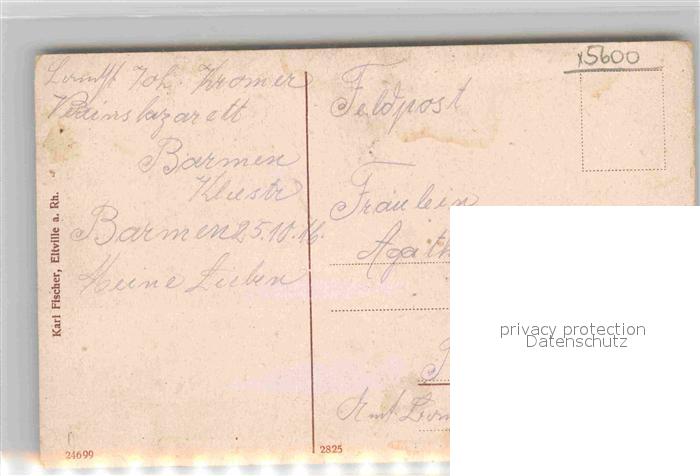 Landst. Joh. Kromer
Vereinslazarett
Barmen
Kleestr
Barmen 25.10.16.
Meine Lieben
Karl Fischer, Eltville a. Rh.
24699
x5600
Feldpost
Fräulein
Agath
privacy protection
Datenschutz
Amt
2825